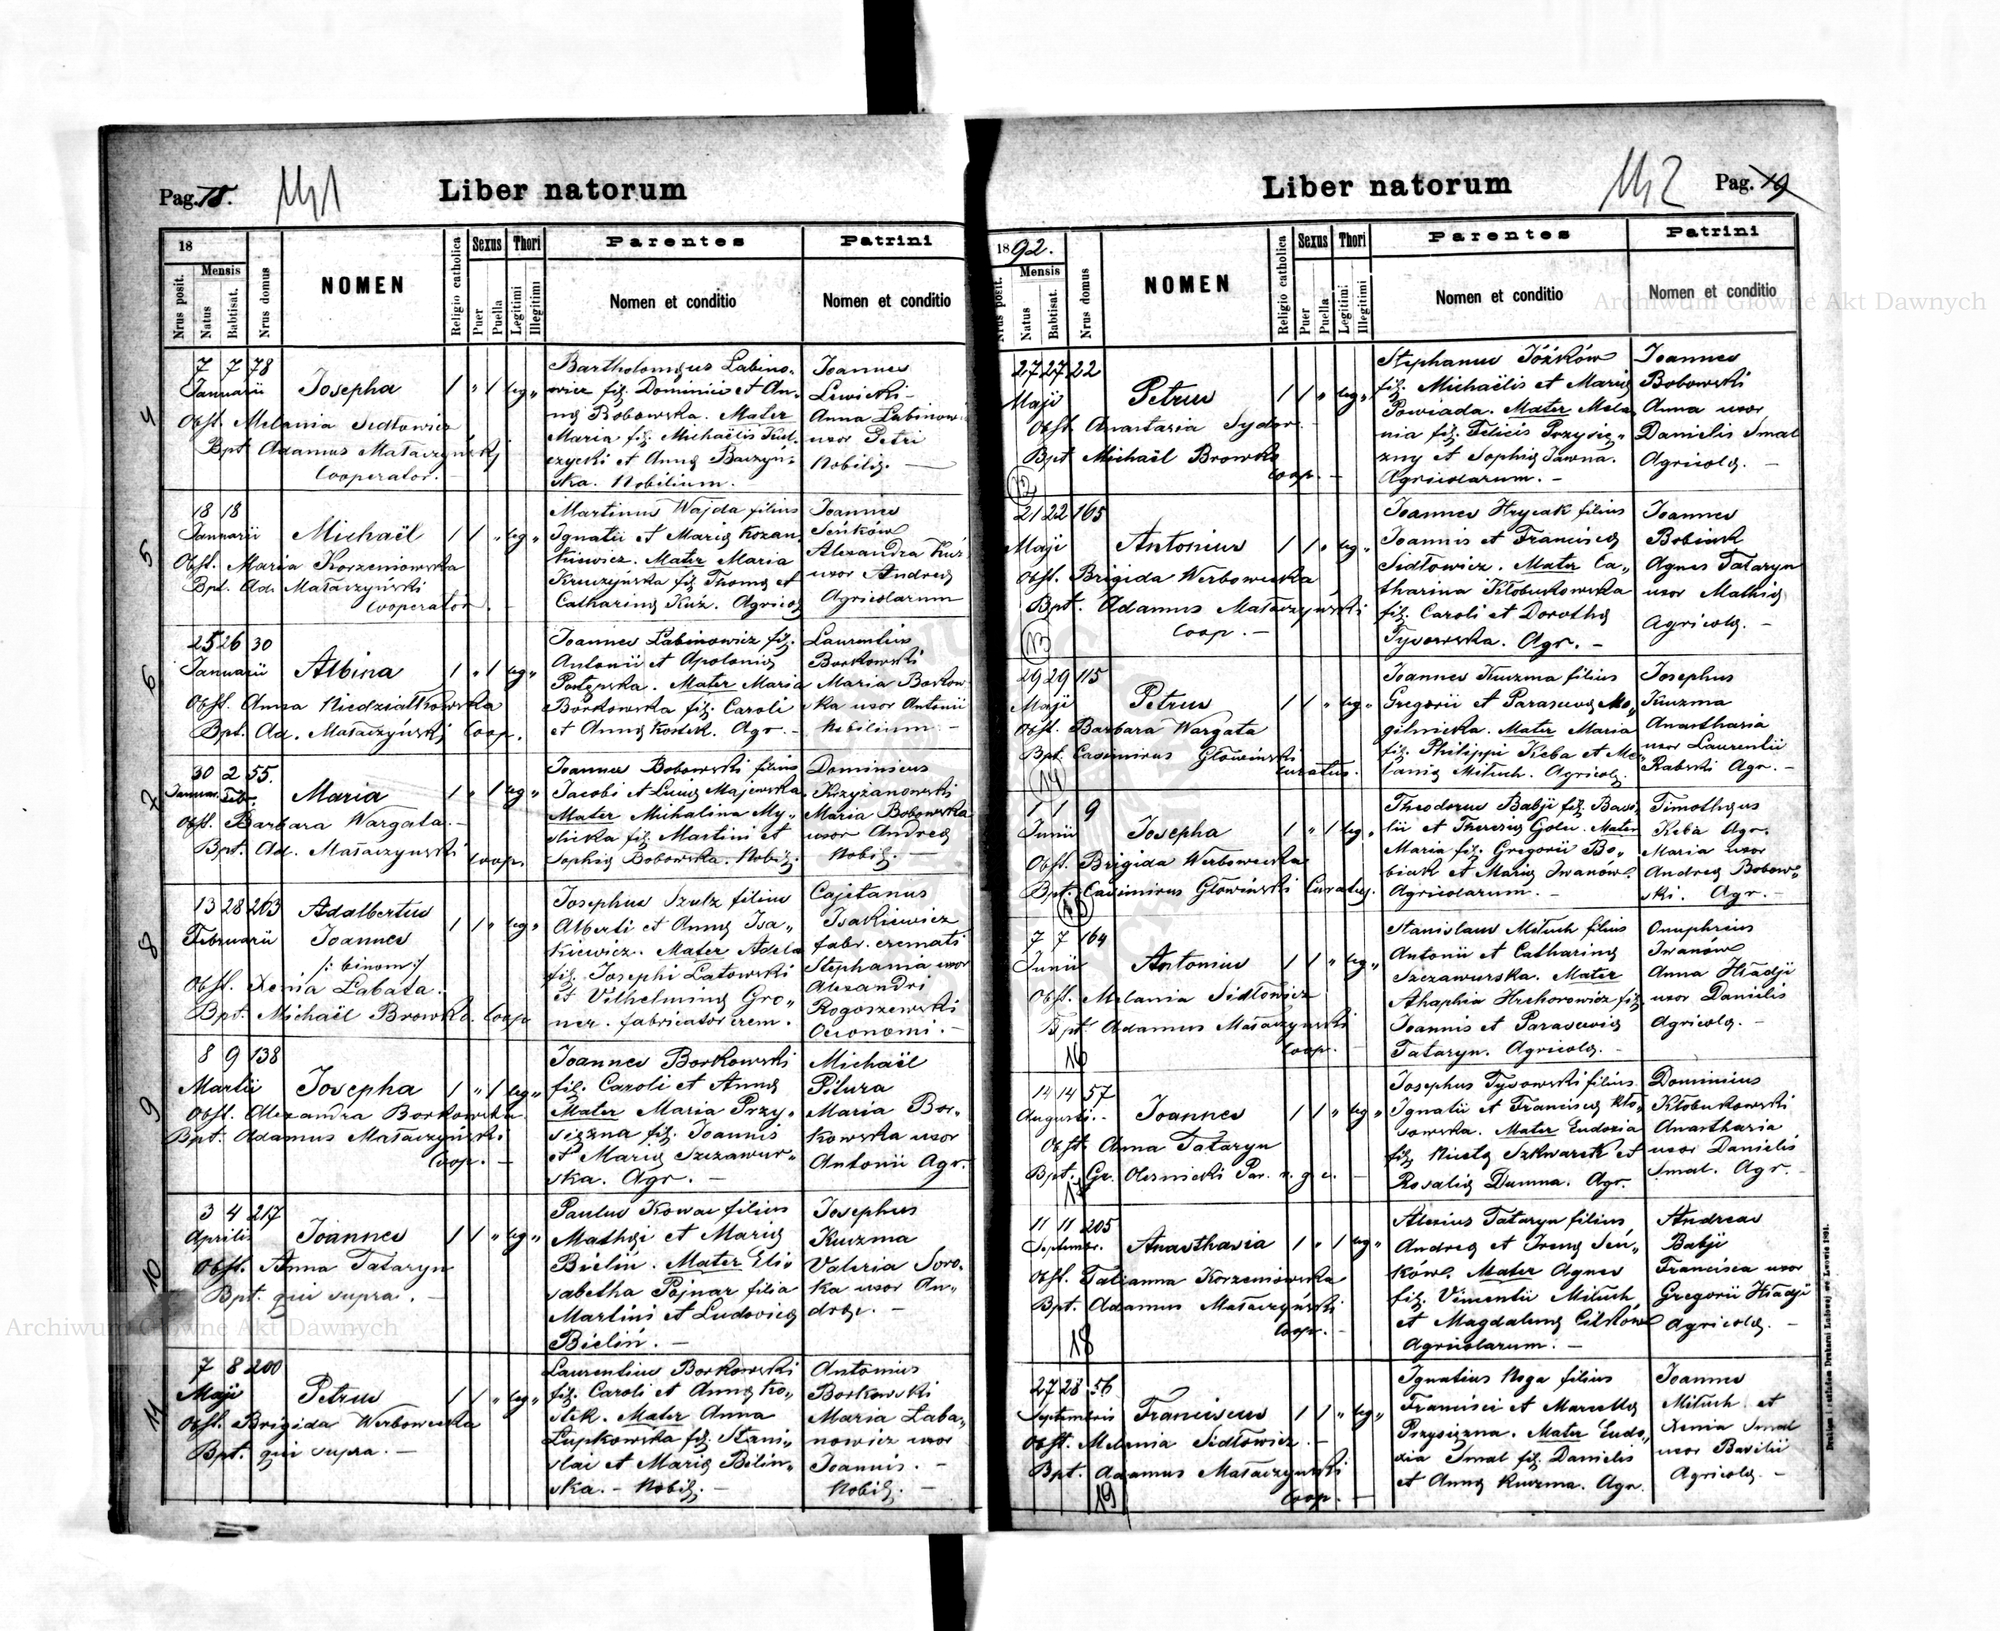 Pag. 78.
141
Liber natorum
18
Nrus posit.
Mensis
Natus
Babtisat.
Nrus domus
NOMEN
Religio catholica
Sexus
Puer
Puella
Thori
Legitimi
Illegitimi
Parentes
Nomen et conditio
Patrini
Nomen et conditio
4
7 7 78
Januarii Josepha 1 " 1 leg "
Obst. Melania Sidłowicz
Bpt. Adamus Mataczyński
Cooperator. -
Bartholomęus Łabino-
wicz fil. Dominici et An-
nę Bobowska. Mater
Maria fil. Michaëlis Kul-
czycki et Annę Baczyń-
ska. Nobilium.
Joannes
Lewicki -
Anna Łabinow.
uxor Petri
Nobilię. -
5
18 18
Januarii Michaël 1 1 " leg "
Obst. Maria Korzeniowska
Bpt. Ad. Mataczyński
Cooperator. -
Martinus Wajda filius
Ignatii et Marię Kozan-
kiewicz. Mater Maria
Kruczyńska fil. Thomę et
Catharinę Kuź. Agricolę
Joannes
Seńków
Alexandra Kuź
uxor Andreę
Agricolarum
6
25 26 30
Januarii Albina 1 " 1 leg "
Obst. Anna Niedziałkowska
Bpt. Ad. Mataczyński Coop.
Joannes Łabinowicz fil.
Antonii et Apolonię
Postępska. Mater Maria
Borkowska fil. Caroli
et Annę Kostek. Agr. -
Laurentius
Borkowski
Maria Borkow-
ska uxor Antonii
Nobilium. -
7
30 2 55.
Januar. Febr. Maria 1 " 1 leg "
Obst. Barbara Wargata. -
Bpt. Ad. Mataczyński Coop.
Joannes Bobowski filius
Jacobi et Lucię Majewska
Mater Michalina My-
slicka fil. Martini et
Sophię Bobowska. Nobil.
Dominicus
Krzyżanowski
Maria Bobowska
uxor Andreę
Nobil. -
8
13 28 263
Februarii
Adalbertus
Joannes 1 1 " leg "
/: binom :/
Obst. Xenia Łabata.
Bpt. Michaël Browko. Coop.
Josephus Szulz filius
Alberti et Annę Isa-
kiewicz. Mater Adela
fil. Josephi Latowski
et Vilhelminę Gro-
ner. fabricator crem.
Cajetanus
Isakiewicz
fabr. cremati
Stephania uxor
Alexandri
Rogoszewski
Oeconomi. -
9
8 9 138
Martii Josepha 1 " 1 leg "
Obst. Alexandra Borkowska
Bpt. Adamus Mataczyński
Coop. -
Joannes Borkowski
fil. Caroli et Annę
Mater Maria Przy-
siężna fil. Joannis
et Marię Szczawur-
ska. Agr. -
Michaël
Pitura
Maria Bor-
kowska uxor
Antonii Agr.
10
3 4 217
Aprilis Joannes 1 1 " leg "
Obst. Anna Tataryn
Bpt. qui supra. -
Paulus Kowac filius
Mathęi et Marię
Bielin. Mater Eli-
sabetha Pojnar filia
Martini et Ludovicę
Bielin. -
Josephus
Kuczma
Valeria Soro-
ka uxor An-
dreę. -
11
7 8 200
Maji Petrus 1 1 " leg "
Obst. Brigida Werbowecka
Bpt. qui supra. -
Laurentius Borkowski
fil. Caroli et Annę Ko-
stek. Mater Anna
Łupkowska fil. Stani-
slai et Marię Bilin-
ska. - Nobil. -
Antonius
Borkowski
Maria Łaba-
nowicz uxor
Joannis. -
Nobil. -
Liber natorum
142
Pag. 79
1892.
Nrus posit.
Mensis
Natus
Babtisat.
Nrus domus
NOMEN
Religio catholica
Sexus
Puer
Puella
Thori
Legitimi
Illegitimi
Parentes
Nomen et conditio
Patrini
Nomen et conditio
27 27 22
Maji Petrus 1 1 " leg "
Obst. Anastasia Sydor. -
Bpt. Michaël Browko
Coop. -
12
Stephanus Jóźków
fil. Michaëlis et Marię
Powiada. Mater Mela
nia fil. Felicis Przysię-
zny et Sophię Jawna.
Agricolarum. -
Joannes
Bobowski
Anna uxor
Danielis Smal
Agricolę. -
21 22 165
Maji Antonius 1 1 " leg "
Obst. Brigida Werbowecka
Bpt. Adamus Mataczyński
Coop. -
13
Joannes Hrycak filius
Joannis et Franciscę
Sidłowicz. Mater Ca-
tharina Kłobukowska
fil. Caroli et Dorothę
Tysowska. Agr. -
Joannes
Bobiak
Agnes Tataryn
uxor Mathię
Agricolę. -
29 29 115
Maji Petrus 1 1 " leg "
Obst. Barbara Wargata
Bpt. Casimirus Głowiński
Curatus.
14
Joannes Kuczma filius
Gregorii et Parascevę Mo-
gilnicka. Mater Maria
fil. Philippi Keba et Me-
lanię Mituch. Agricolę.
Josephus
Kuczma
Anasthasia
uxor Laurentii
Rabski Agr. -
1 1 9
Junii Josepha 1 " 1 leg "
Obst. Brigida Werbowecka
Bpt. Casimirus Głowiński Curatus.
15
Theodorus Babji fil. Basi-
lii et Theresię Golec. Mater
Maria fil. Gregorii Bo-
biak et Marię Iwanów.
Agricolarum. -
Timothęus
Keba Agr.
Maria uxor
Andreę Bobow-
ski. Agr. -
7 7 164
Junii Antonius 1 1 " leg "
Obst. Melania Sidłowicz
Bpt. Adamus Mataczyński
Coop. -
16
Stanislaus Mituch filius
Antonii et Catharinę
Szczawurska. Mater
Ahaphia Hrehorowicz fil.
Joannis et Parascevię
Tataryn. Agricolę. -
Onuphrius
Iwanów
Anna Hładji
uxor Danielis
Agricolę. -
14 14 57
Augusti. Joannes 1 1 " leg "
Obst. Anna Tataryn
Bpt. Gr. Olesnicki Par. r. g. c. -
17
Josephus Tysowski filius
Ignatii et Franciscę Kło-
sowska. Mater Eudoxia
fil. Nicetę Szkwarek et
Rosalię Dumna. Agr.
Dominius
Kłobukowski
Anasthasia
uxor Danielis
Smal. Agr. -
11 11 205
Septembr. Anasthasia 1 " 1 leg "
Obst. Tatianna Korzeniowska
Bpt. Adamus Mataczyński
Coop. -
18
Alexius Tataryn filius
Andreę et Irenę Seń-
ków. Mater Agnes
fil. Vincentii Mituch
et Magdalenę Cilków
Agricolarum. -
Andreas
Babji
Francisca uxor
Gregorii Hładji
Agricolę. -
27 28 56
Septembris Franciscus 1 1 " leg "
Obst. Melania Sidłowicz. -
Bpt. Adamus Mataczyński
Coop. -
19
Ignatius Noga filius
Francisci et Marcellę
Przysiężna. Mater Eudo-
xia Smal fil. Danielis
et Annę Kuczma. Agr.
Joannes
Mituch et
Xenia Smal
uxor Basilii
Agricolę. -
Archiwum Główne Akt Dawnych
Archiwum Główne Akt Dawnych